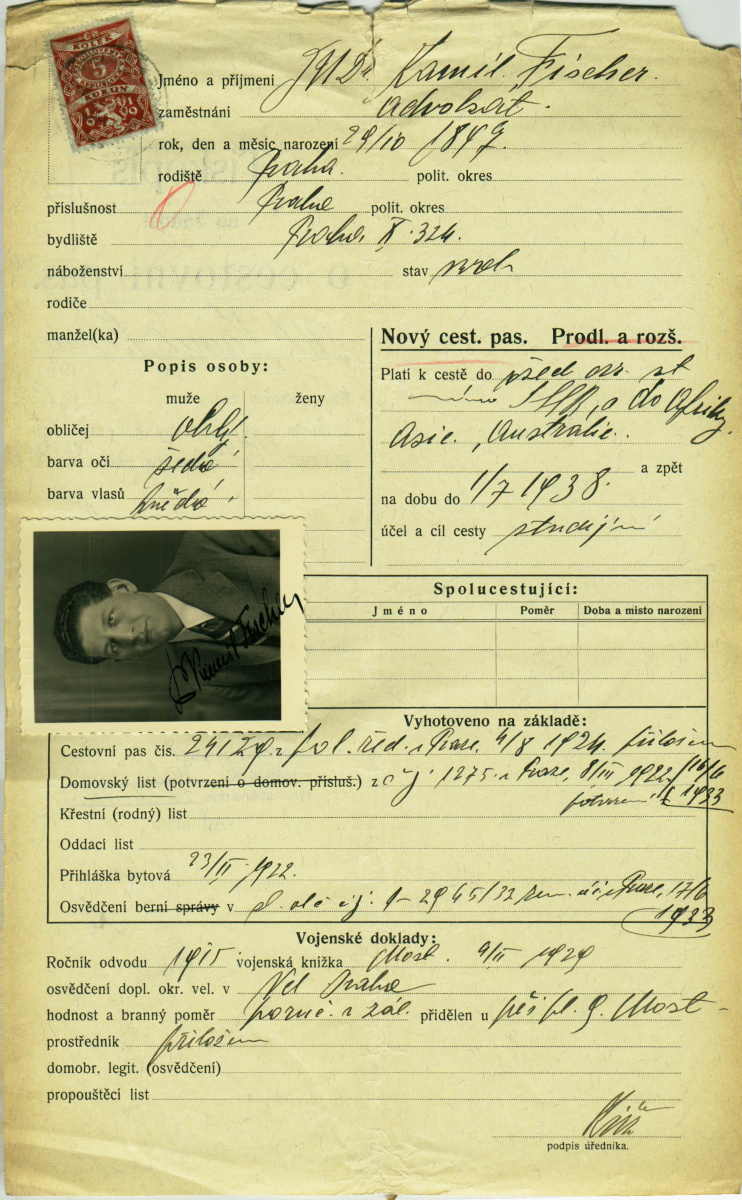 KOLEK
5
KORUN
Jméno a příjmení JUDr. Kamil Fischer.
zaměstnání advokát.
rok, den a měsíc narození 29/10 1897.
rodiště Praha. polit. okres
příslušnost Praha polit. okres
bydliště Praha, II. 324.
náboženství stav svob
rodiče
manžel(ka)
Popis osoby:
muže ženy
obličej obdl.
barva očí šedá
barva vlasů hnědá
Nový cest. pas. Prodl. a rozš.
Platí k cestě do všech evr. st
mimo SSSR, a do Afriky,
Asie, Australie.
a zpět
na dobu do 1/7 1938.
účel a cíl cesty studijní
Dr Kamil Fischer
Spolucestující:
Jméno Poměr Doba a místo narození
Vyhotoveno na základě:
Cestovní pas čís. pol. řed. v Praze, 4/8 1924. přiložen
Domovský list (potvrzení o domov. přísluš.) čj. 1275 v Praze, 8/III 1922, 16/6
potvrzení 1933
Křestní (rodný) list
Oddací list
Přihláška bytová 23/II 1922.
Osvědčení berní správy v čj: 2945/32 Praze, 17/6
1933
Vojenské doklady:
Ročník odvodu 1915 vojenská knížka Most. 9/II 1929
osvědčení dopl. okr. vel. v Vel Praha
hodnost a branný poměr poruč. v zál. přidělen u pěš. pl. 9. Most
prostředník přiložen
domobr. legit. (osvědčení)
propouštěcí list
podpis úředníka.